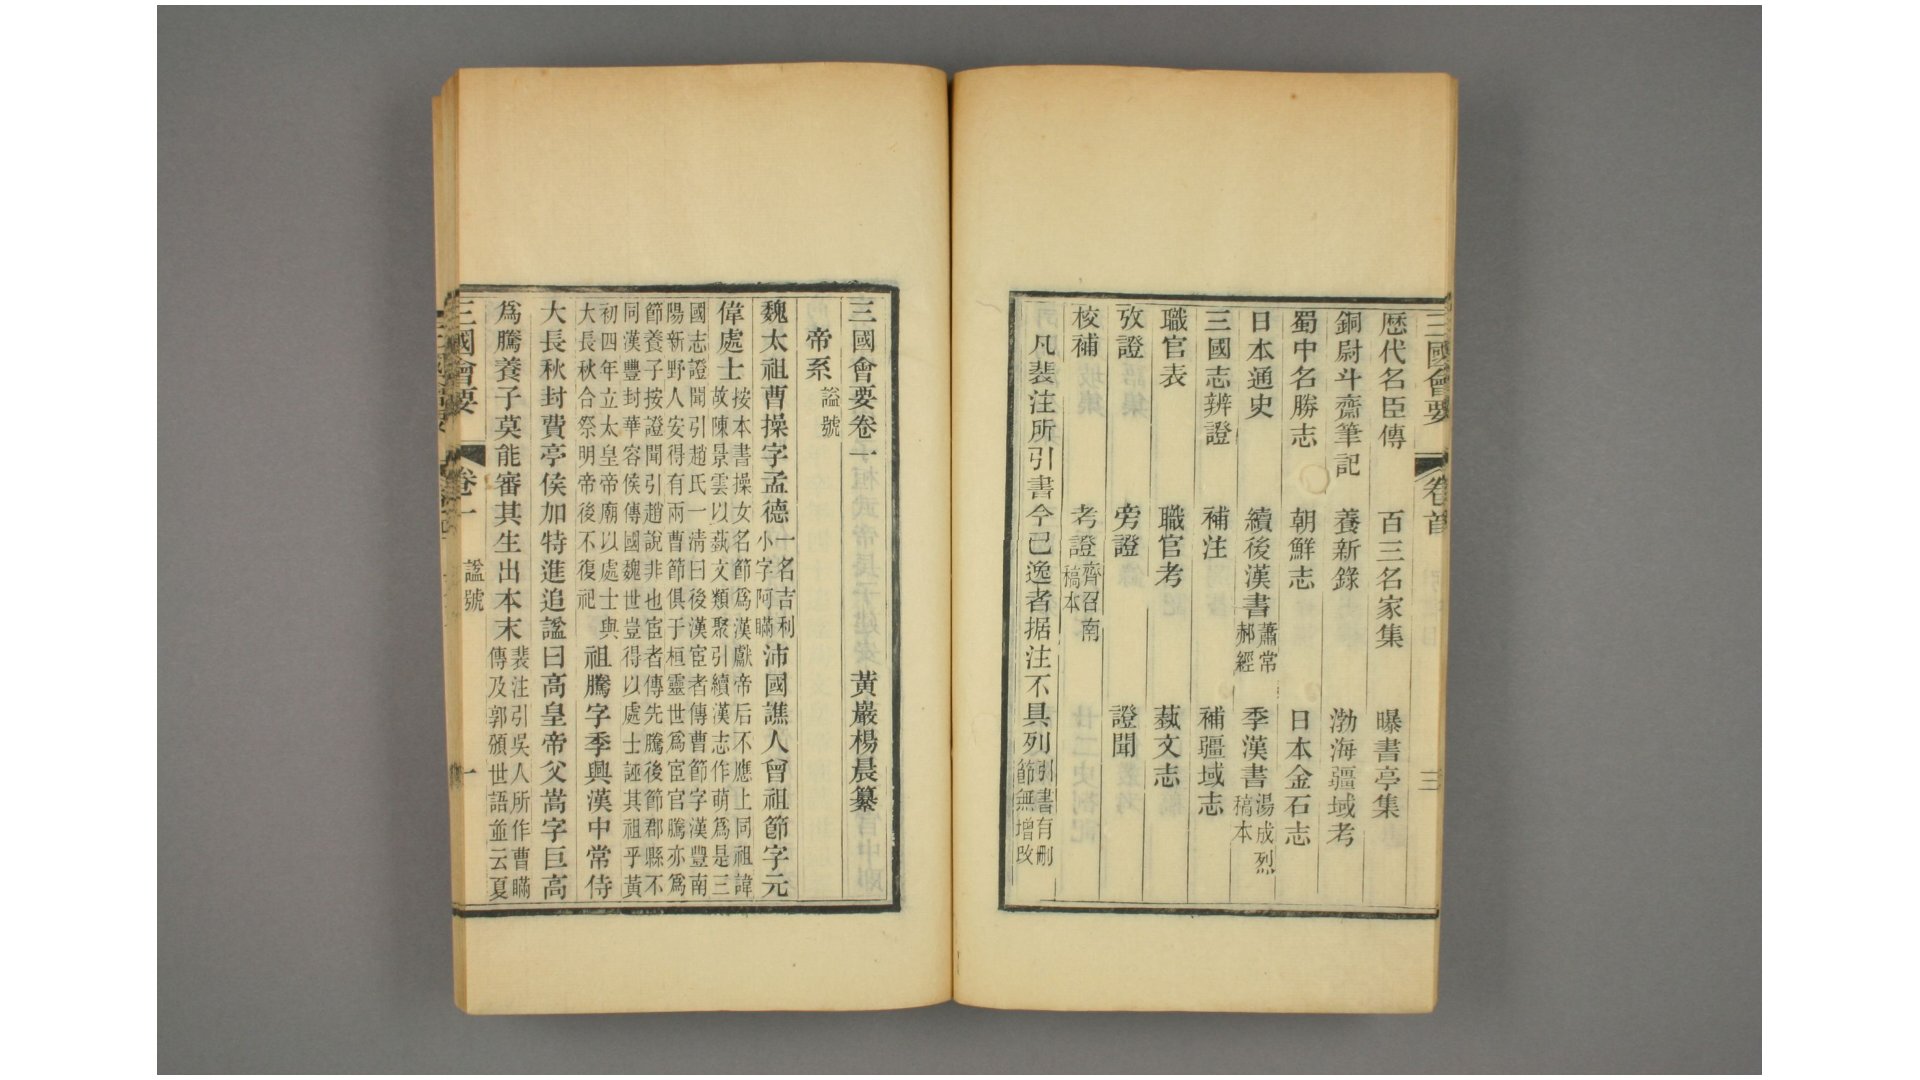 三國會要 卷首 三
歷代名臣傳 百三名家集 曝書亭集
銅尉斗齋筆記 養新錄 渤海疆域考
蜀中名勝志 朝鮮志 日本金石志
日本通史 續後漢書 蕭常 郝經 季漢書 湯成烈 稿本
三國志辨證 補注 補疆域志
職官表 職官考 蓺文志
攷證 旁證 證聞
校補 考證 齊召南 稿本
凡裴注所引書今已逸者据注不具列 引書有刪 節無增改
三國會要卷一 黃巖楊晨纂
帝系 謚號
魏太祖曹操字孟德 一名吉利 小字阿瞞 沛國譙人曾祖節字元
偉處士 按本書操女名節爲漢獻帝后不應上同祖諱 故陳景雲以蓺文類聚引續漢志作萌爲是三
國志證聞引趙氏一清曰後漢宦者傳曹節字漢豐南
陽新野人安得有兩曹節俱于桓靈世爲宦官騰亦爲
節養子按證聞引趙說非也宦者傳先騰後節郡縣不
同漢豐封華容侯傳國魏世豈得以處士誣其祖乎黃
初四年立太皇帝廟以處士與
大長秋合祭明帝後不復祀 祖騰字季興漢中常侍
大長秋封費亭侯加特進追謚曰高皇帝父嵩字巨高
爲騰養子莫能審其生出本末 裴注引吳人所作曹瞞 傳及郭頒世語並云夏
三國會要 卷一 謚號 一